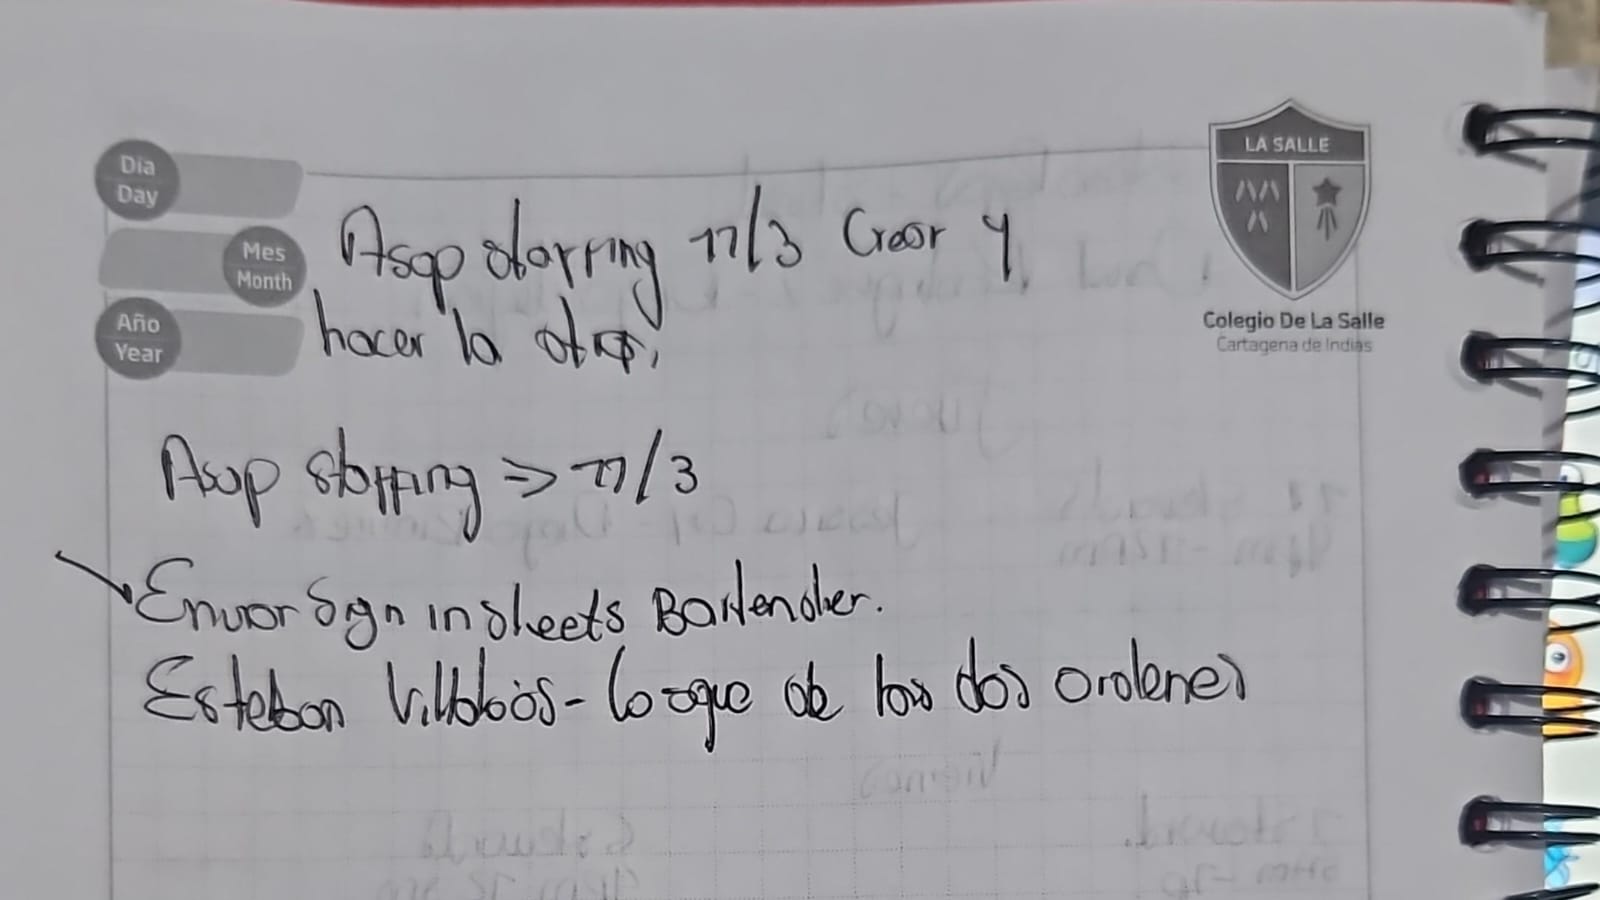 Día
Day
Mes
Month
Año
Year
LA SALLE
Colegio De La Salle
Cartagena de Indias
Asap staffing 11/3 Crear y
hacer la otra,
Asap staffing => 11/3
Enviar Sign in sheets Bartender.
Esteban Villalobos - lo que de las dos ordenes